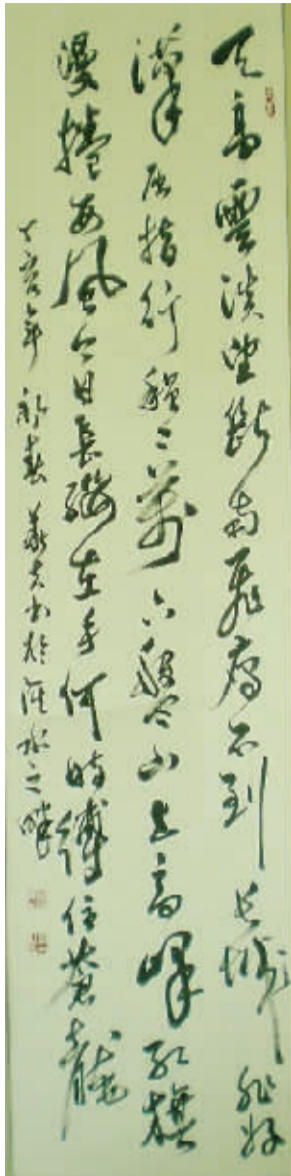 天高雲淡望断南飛雁不到长城非好
漢屈指行程二萬六盤山上高峰红旗
漫捲西風今日長纓在手何時縛住蒼龍
丁亥年 春 书於淮水之畔